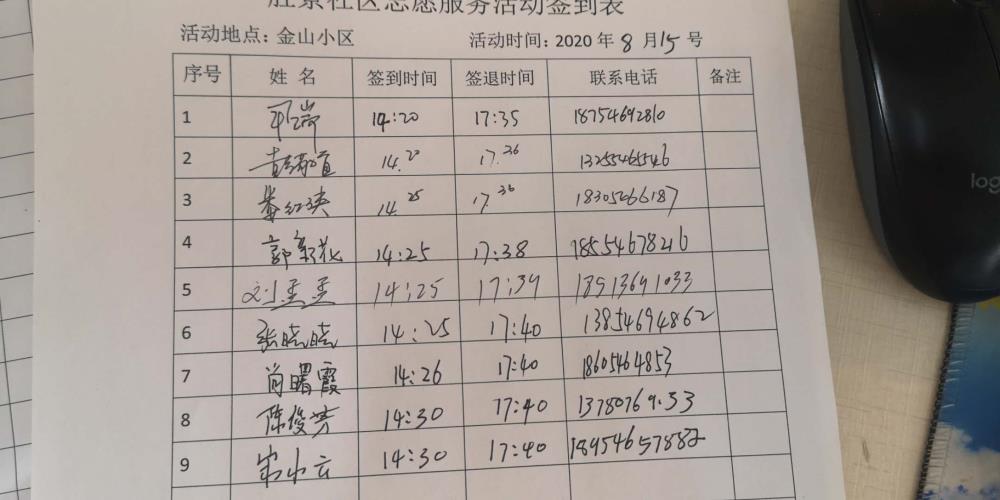 胜景社区志愿服务活动签到表
活动地点：金山小区 活动时间：2020 年 8 月 15 号
序号 姓 名 签到时间 签退时间 联系电话 备注
1 14:20 17:35 18754692810
2 14.23 17.36 13255465546
3 14.25 17.36 18305466187
4 郭新花 14:25 17:38 18554678216
5 刘孟孟 14:25 17:39 18913691033
6 张晓晓 14:25 17:40 13854694862
7 肖曙霞 14:26 17:40 18605464853
8 陈俊芳 14:30 17:40
9 宋小云 14:30 17:40 18954657882
log